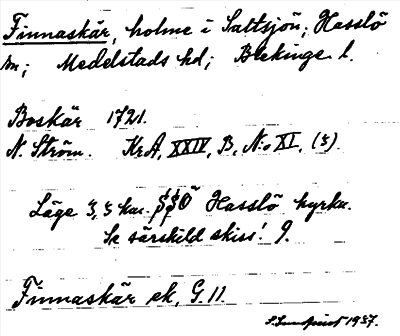 Finnaskär, holme i Saltsjön; Hasslö
sn; Medelstads hd; Blekinge l.
Boskär 1721.
N. Ström. KrA, XXIV, B, N:o XI, (3).
Läge 3,3 km. Hasslö kyrka.
Se särskild skiss! 9.
Finnaskär ek, G. 11.
1937.